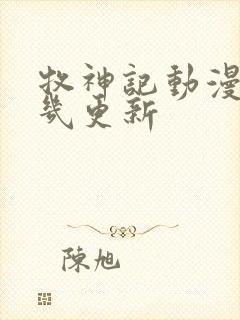 牧神記動漫
幾更新
陳旭